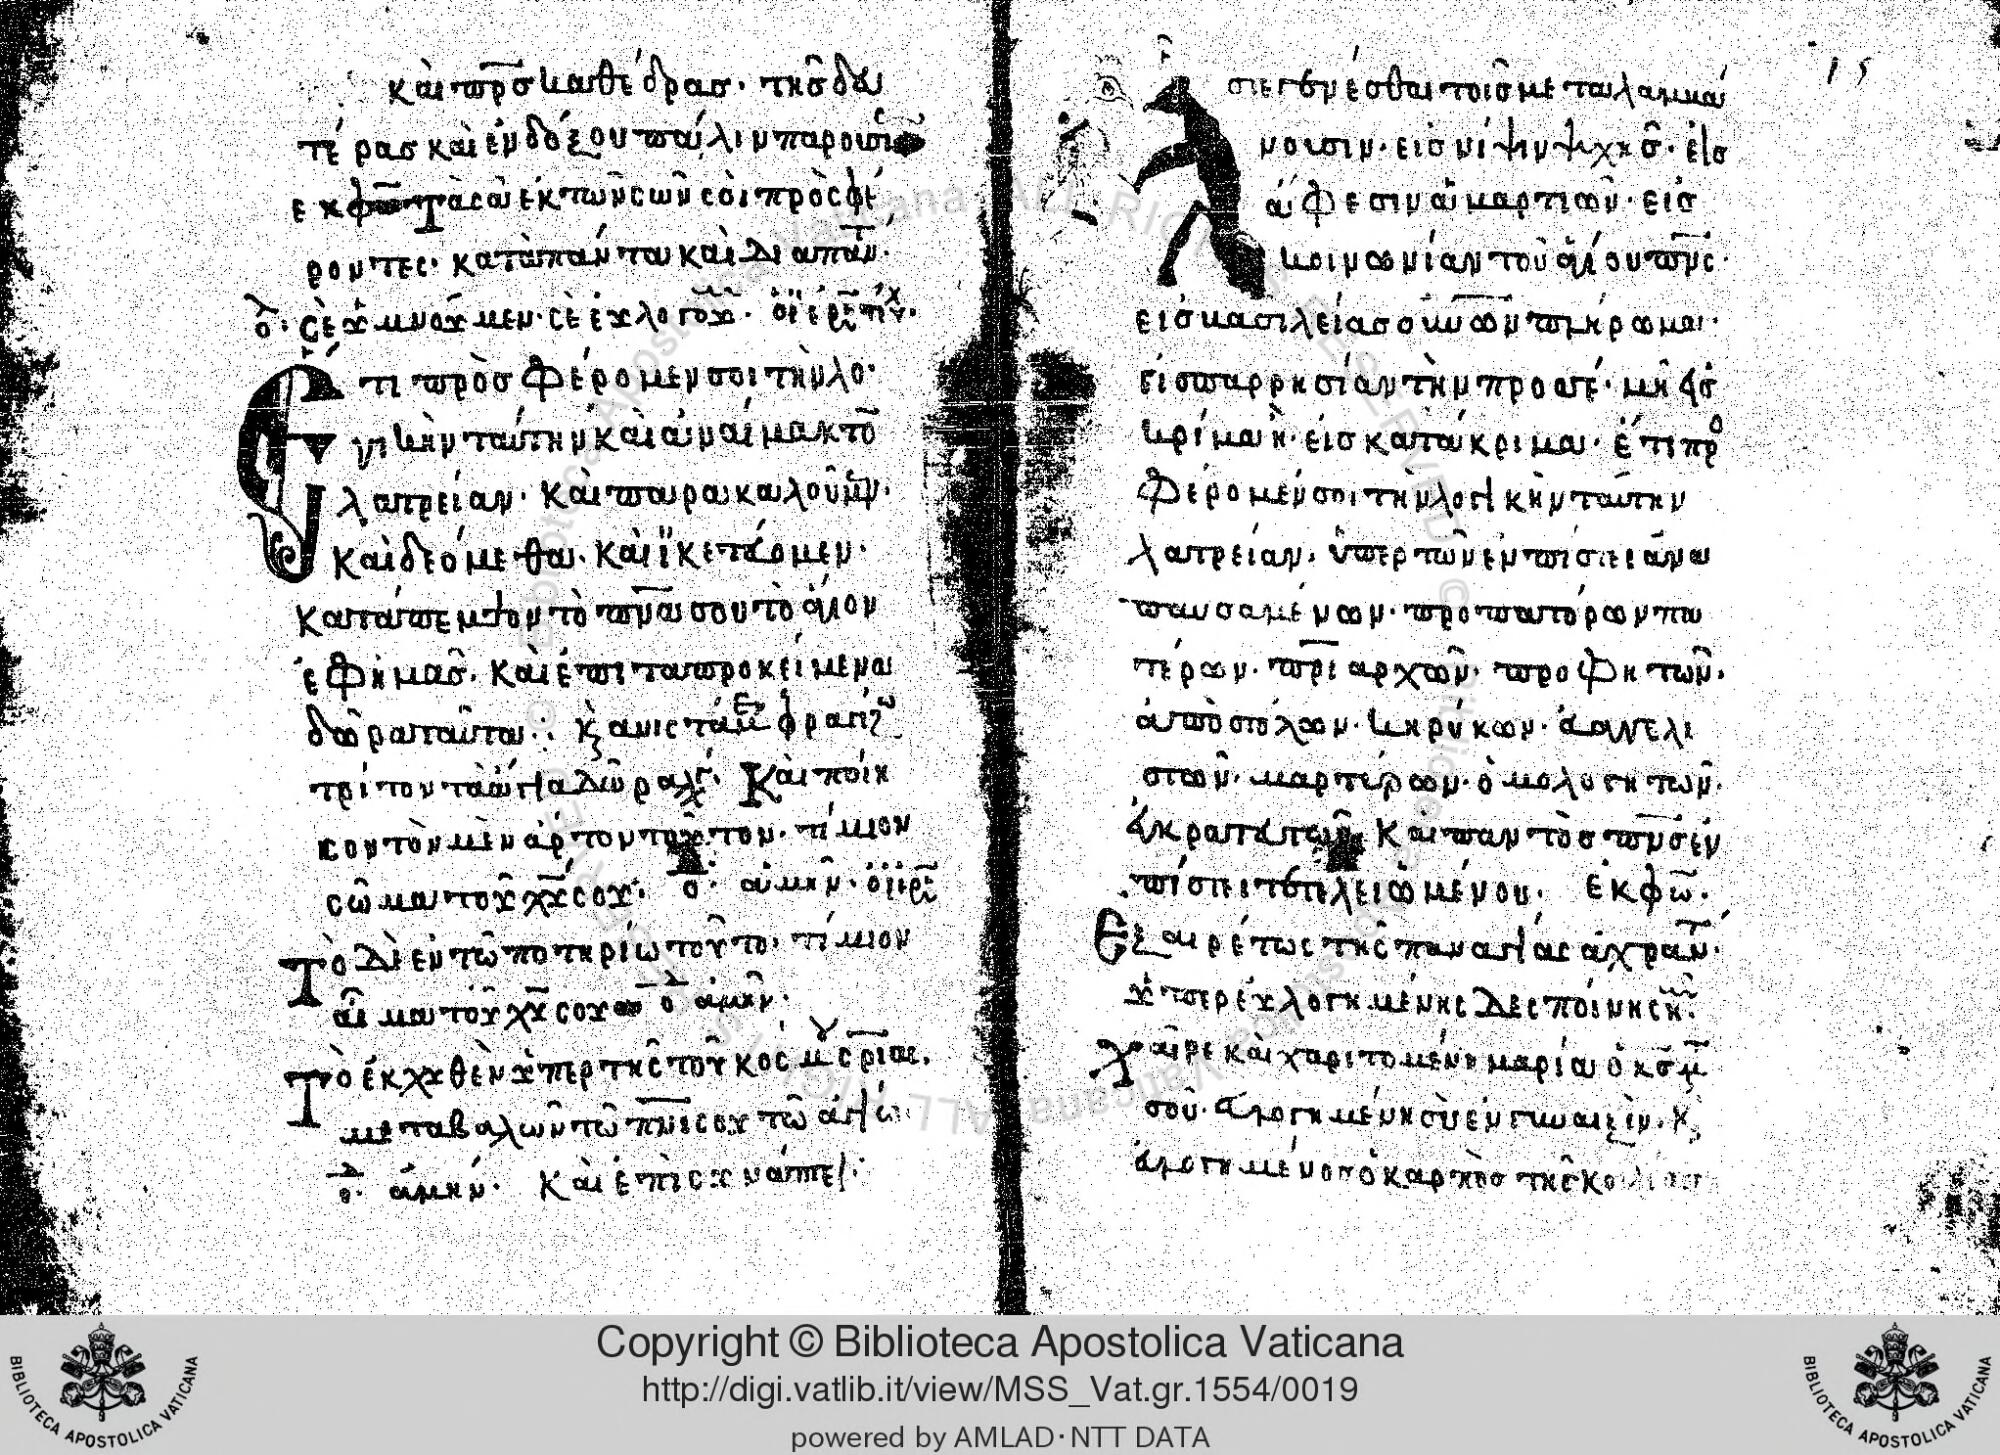 καὶ πρ̅ὸσ καθέδρασ· τῆσ δευ
τέρασ καὶ ἐνδόξου πάλιν παρουσί
ἐκφω̅ Τὰ σὰ ἐκ τῶν σῶν σοὶ προσφέ
ροντες· κατὰ πάντα καὶ διὰ πάν̅τ·
ὁ λ· Σὲ ὑμνοῦμεν· σὲ εὐλογοῦ
Ἔτι προσφέρομέν σοι τὴν λο·
γικὴν ταύτην καὶ ἀναίμακτο̅
λατρείαν· καὶ παρακαλοῦμεν·
καὶ δεόμεθα· καὶ ἱκετεύομεν·
κατάπεμψον τὸ πν̅α σου τὸ ἅγιον
ἐφ ἡμᾶσ· καὶ ἐπὶ τὰ προκείμενα
δῶρα ταῦτα: κ̀ ἀνιστάμε σφραγίζ
τρίτον τὰ ἅγια δῶρα λέγ· Καὶ ποίη
σον τὸν μὲν ἄρτον τοῦτον· τίμιον
σῶμα τοῦ χ̅υ σου· ὁ λ· ἀμήν· ὁ ἱερ̅
Τὸ δὲ ἐν τῶ ποτηρίω τούτο· τίμιον
αἷμα τοῦ χ̅υ σου ὁ λ ἀμήν·
Τὸ ἐκχυθὲν ὑπὲρ τῆς τοῦ κόσμου σ̅ριας,
μεταβαλὼν τῶ πν̅ι σου τῶ ἁγίω
ὁ λ· ἀμήν· Καὶ ἐπισυνάπτει·
15
σιε γενέσθαι τοῖσ μεταλαμβά
νουσιν· εἰσ νίψιν ψυχῆσ· εἰσ
ἄφεσιν ἁμαρτιῶν· εἰσ
κοινωνίαν τοῦ ἁγίου πν̅ς·
εἰσ βασιλείασ ο̅υ̅ν̅ω̅ν πλήρωμα·
εἰσ παρρησίαν τὴν πρὸσ σέ· μὴ εἰσ
κρίμα ἢ· εἰσ κατάκριμα· ἔτι προ
φέρομέν σοι τὴν λογικὴν ταύτην
λατρείαν· ὑπὲρ τῶν ἐν πίστει ἀνα
παυσαμένων· προπατόρων πα
τέρων· πρ̅ιαρχῶν· προφητῶν·
ἀποστόλων· κηρύκων· εὐαγγελι
στῶν· μαρτύρων· ὁμολογητῶν·
ἐγκρατευτῶν καὶ παντὸσ πν̅σ ἐν
πίστει τετελειωμένου· ἐκφω̅·
Ἐξαιρέτως τῆς παναγίας ἀχράν̅τ·
ὑπερευλογημένης δεσποίνης ἡ·
Χαῖρε καὶχαριτομένη μαρία ὁ κ̅σ μ̅
σοῦ· εὐλογημένη σὺ ἐν γυναιξὶν· κ̀
εὐλογημένοσ ὁ καρπὸσ τῆς κοιλίασ
Copyright © Biblioteca Apostolica Vaticana
http://digi.vatlib.it/view/MSS_Vat.gr.1554/0019
powered by AMLAD·NTT DATA
BIBLIOTECA APOSTOLICA VATICANA
BIBLIOTECA APOSTOLICA VATICANA